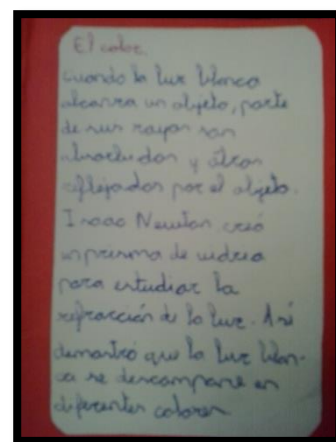 El color.
Cuando la luz blanca
alcanza un objeto, parte
de sus rayos son
absorbidos y otros
reflejados por el objeto.
Isaac Newton creó
un prisma de vidrio
para estudiar la
refracción de la luz. Así
demostró que la luz blan-
ca se descompone en
diferentes colores